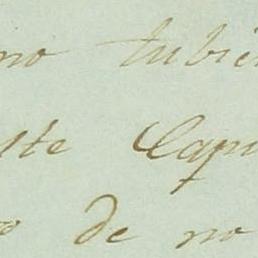 no tubie
ste Capi
de no